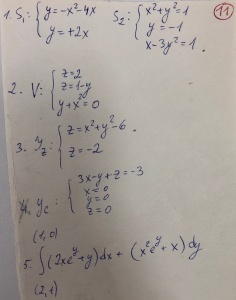 1. S₁: { y=-x²-4x
y=+2x
S₂: { x²+y²=1
y=-1
x-3y²=1.
11
2. V: { z=2
z=1-y
y+x²=0
3. y_z: { z=x²+y²-6.
z=-2
4. y_c: { 3x-y+z=-3
x=0
y=0
z=0
(1,0)
5. ∫(2xe^y+y)dx+(x²e^y+x)dy
(2,1)